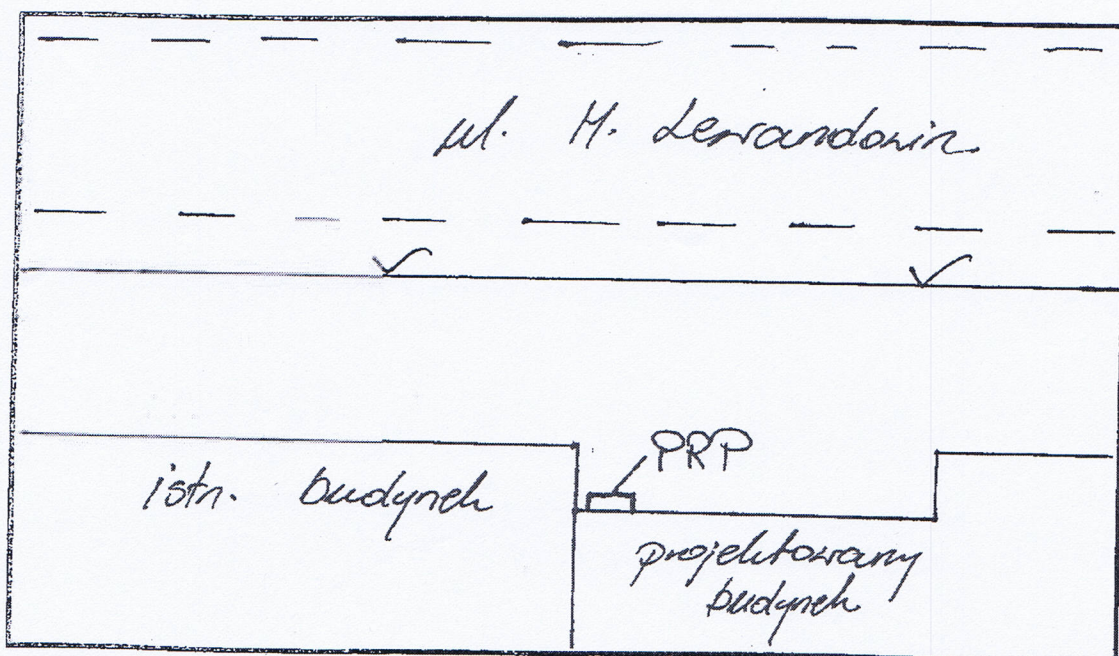 ul. M. Lewandowicz
PRP
istn. budynek
projektowany
budynek